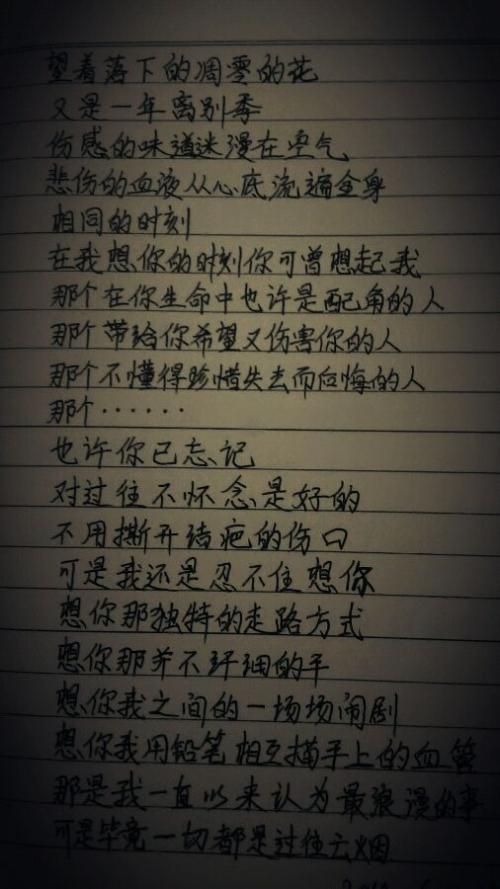 望着落下的凋零的花
又是一年离别季
伤感的味道迷漫在空气
悲伤的血液从心底流遍全身
相同的时刻
在我想你的时刻你可曾想起我
那个在你生命中也许是配角的人
那个带给你希望又伤害你的人
那个不懂得珍惜失去而后悔的人
那个······
也许你已忘记
对过往不怀念是好的
不用撕开结疤的伤口
可是我还是忍不住想你
想你那独特的走路方式
想你那并不纤细的手
想你我之间的一场场闹剧
想你我用铅笔相互描手上的血管
那是我一直以来认为最浪漫的事
可是毕竟一切都是过往云烟